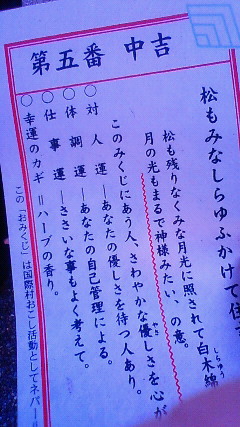 第五番 中吉
松もみなしらゆふかけて住
しらゆう
松も残りなくみな月光に照されて白木綿
月の光もまるで神様みたい、の意。
やさ
このみくじにあう人、さわやかな優しさを心が
○対人運―あなたの優しさを待つ人あり。
○体調運―あなたの自己管理による。
○仕事運―ささいな事もよく考えて。
○幸運のカギ＝ハーブの香り。
この「おみくじ」は国際村おこし活動としてネパー